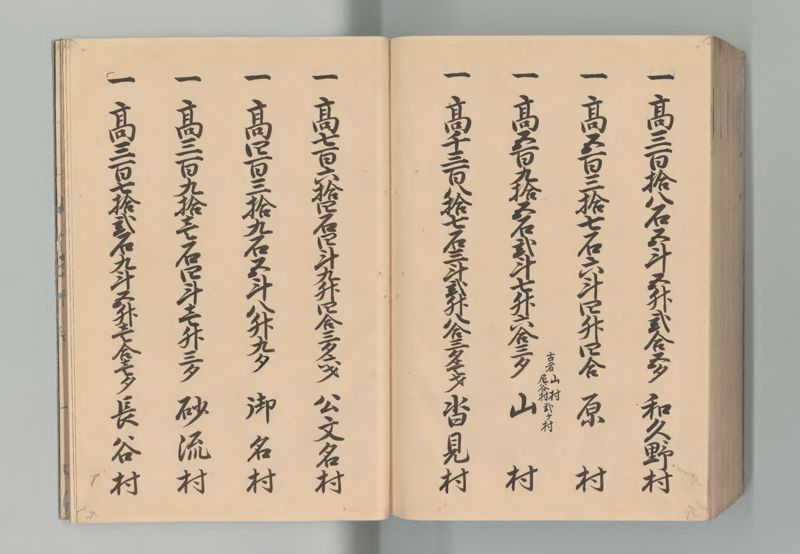 一高三百拾八石五斗五升弐合五夕 和久野村
一高五百三拾七石六斗四升四合 原村
古者山村尼谷村弐ヶ村
一高五百九拾五石弐斗七升六合三夕 山村
一高千三百八拾七石三斗弐升八合三夕壱才 沓見村
一高七百六拾四石四斗九升四合三夕六才 公文名村
一高四百三拾九石五斗八升九夕 御名村
一高三百九拾壱石四斗壱升三夕 砂流村
一高三百七拾弐石九斗五升壱合壱夕 長谷村